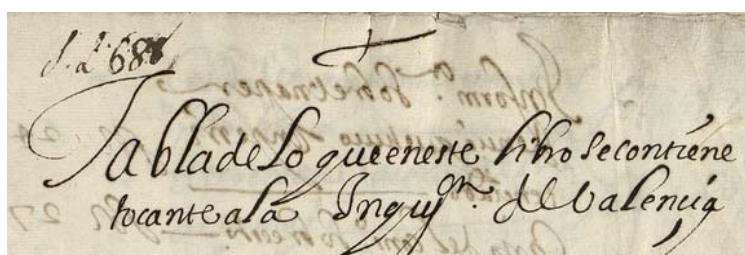 Tabla de lo que en este libro se contiene
tocante a la Inquiº̄n. de Valençia